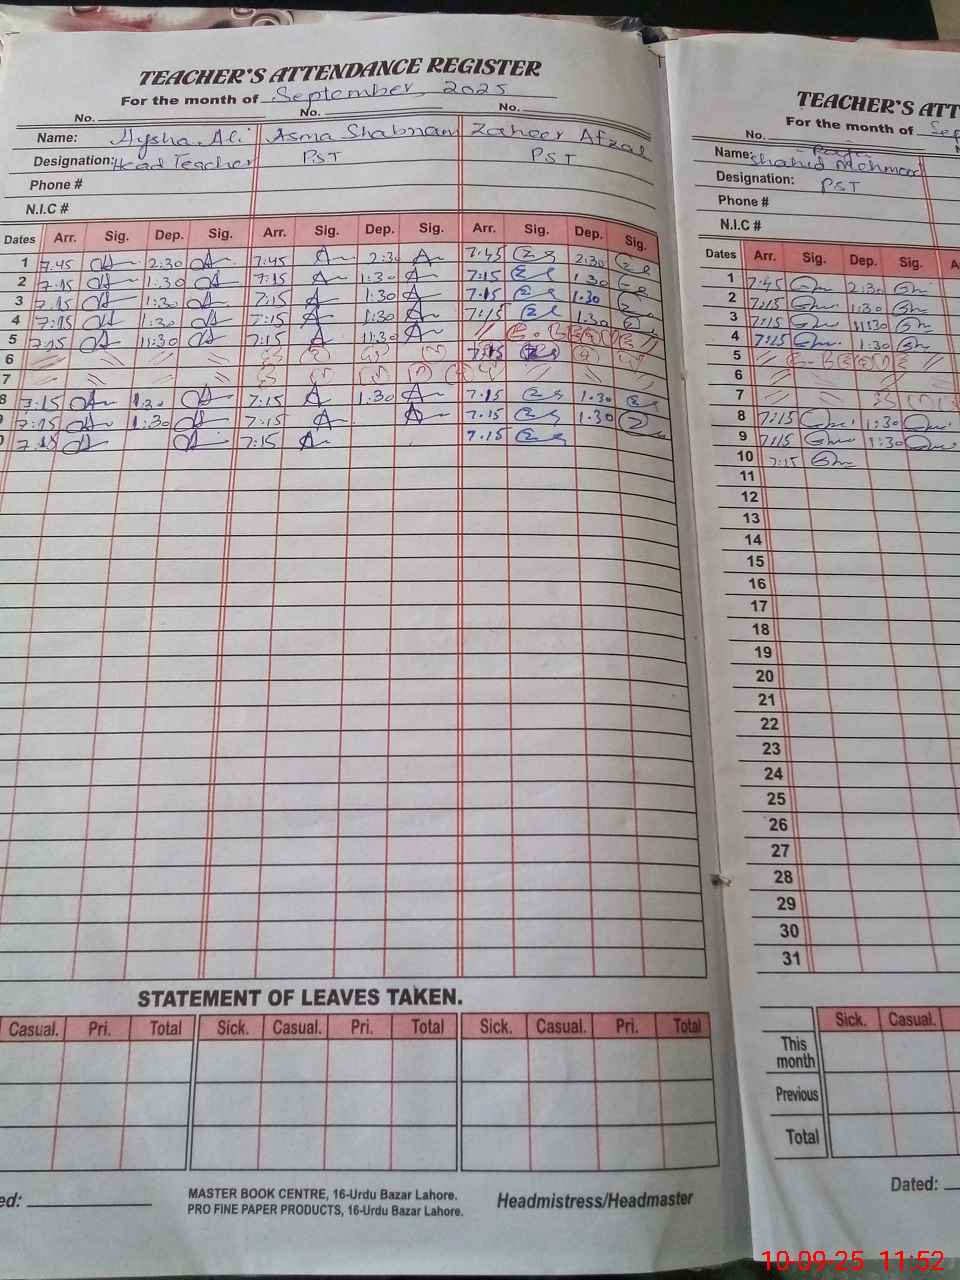 TEACHER'S ATTENDANCE REGISTER
For the month of September, 2025
No. No. No.
Name: Aysha Ali Asma Shabnam Zaheer Afzal
Designation: Head Teacher PST PST
Phone #
N.I.C #
Dates Arr. Sig. Dep. Sig. Arr. Sig. Dep. Sig. Arr. Sig. Dep. Sig.
1 7.45 2:30 7:45 2:30 7:45 2:30
2 7.15 1:30 7:15 1:30 7:15 1 30
3 7.15 1:30 7:15 1:30 7.15 1.30
4 7:15 1:30 7:15 1:30 7:15 1:30
5 7:15 11:30 7:15 11:30
6 7:15
7
8 7:15 1:30 7.15 1:30 7.15 1.30
9 7:15 1:30 7:15 7.15 1.30
0 7.15 7:15 7.15
STATEMENT OF LEAVES TAKEN.
Casual. Pri. Total Sick. Casual. Pri. Total Sick. Casual. Pri. Total
ed:
MASTER BOOK CENTRE, 16-Urdu Bazar Lahore.
PRO FINE PAPER PRODUCTS, 16-Urdu Bazar Lahore.
Headmistress/Headmaster
TEACHER'S ATT
For the month of Sep
No.
Name: Shahid Mehmood
Designation: PST
Phone #
N.I.C #
Dates Arr. Sig. Dep. Sig. A
1 7:45 2:30
2 7:15 1:30
3 7:15 11:30
4 7:15 1:30
5
6
7
8 7:15 1:30
9 7:15 1:30
10 7:15
11
12
13
14
15
16
17
18
19
20
21
22
23
24
25
26
27
28
29
30
31
Sick. Casual.
This month
Previous
Total
Dated:
10-09-25 11:52